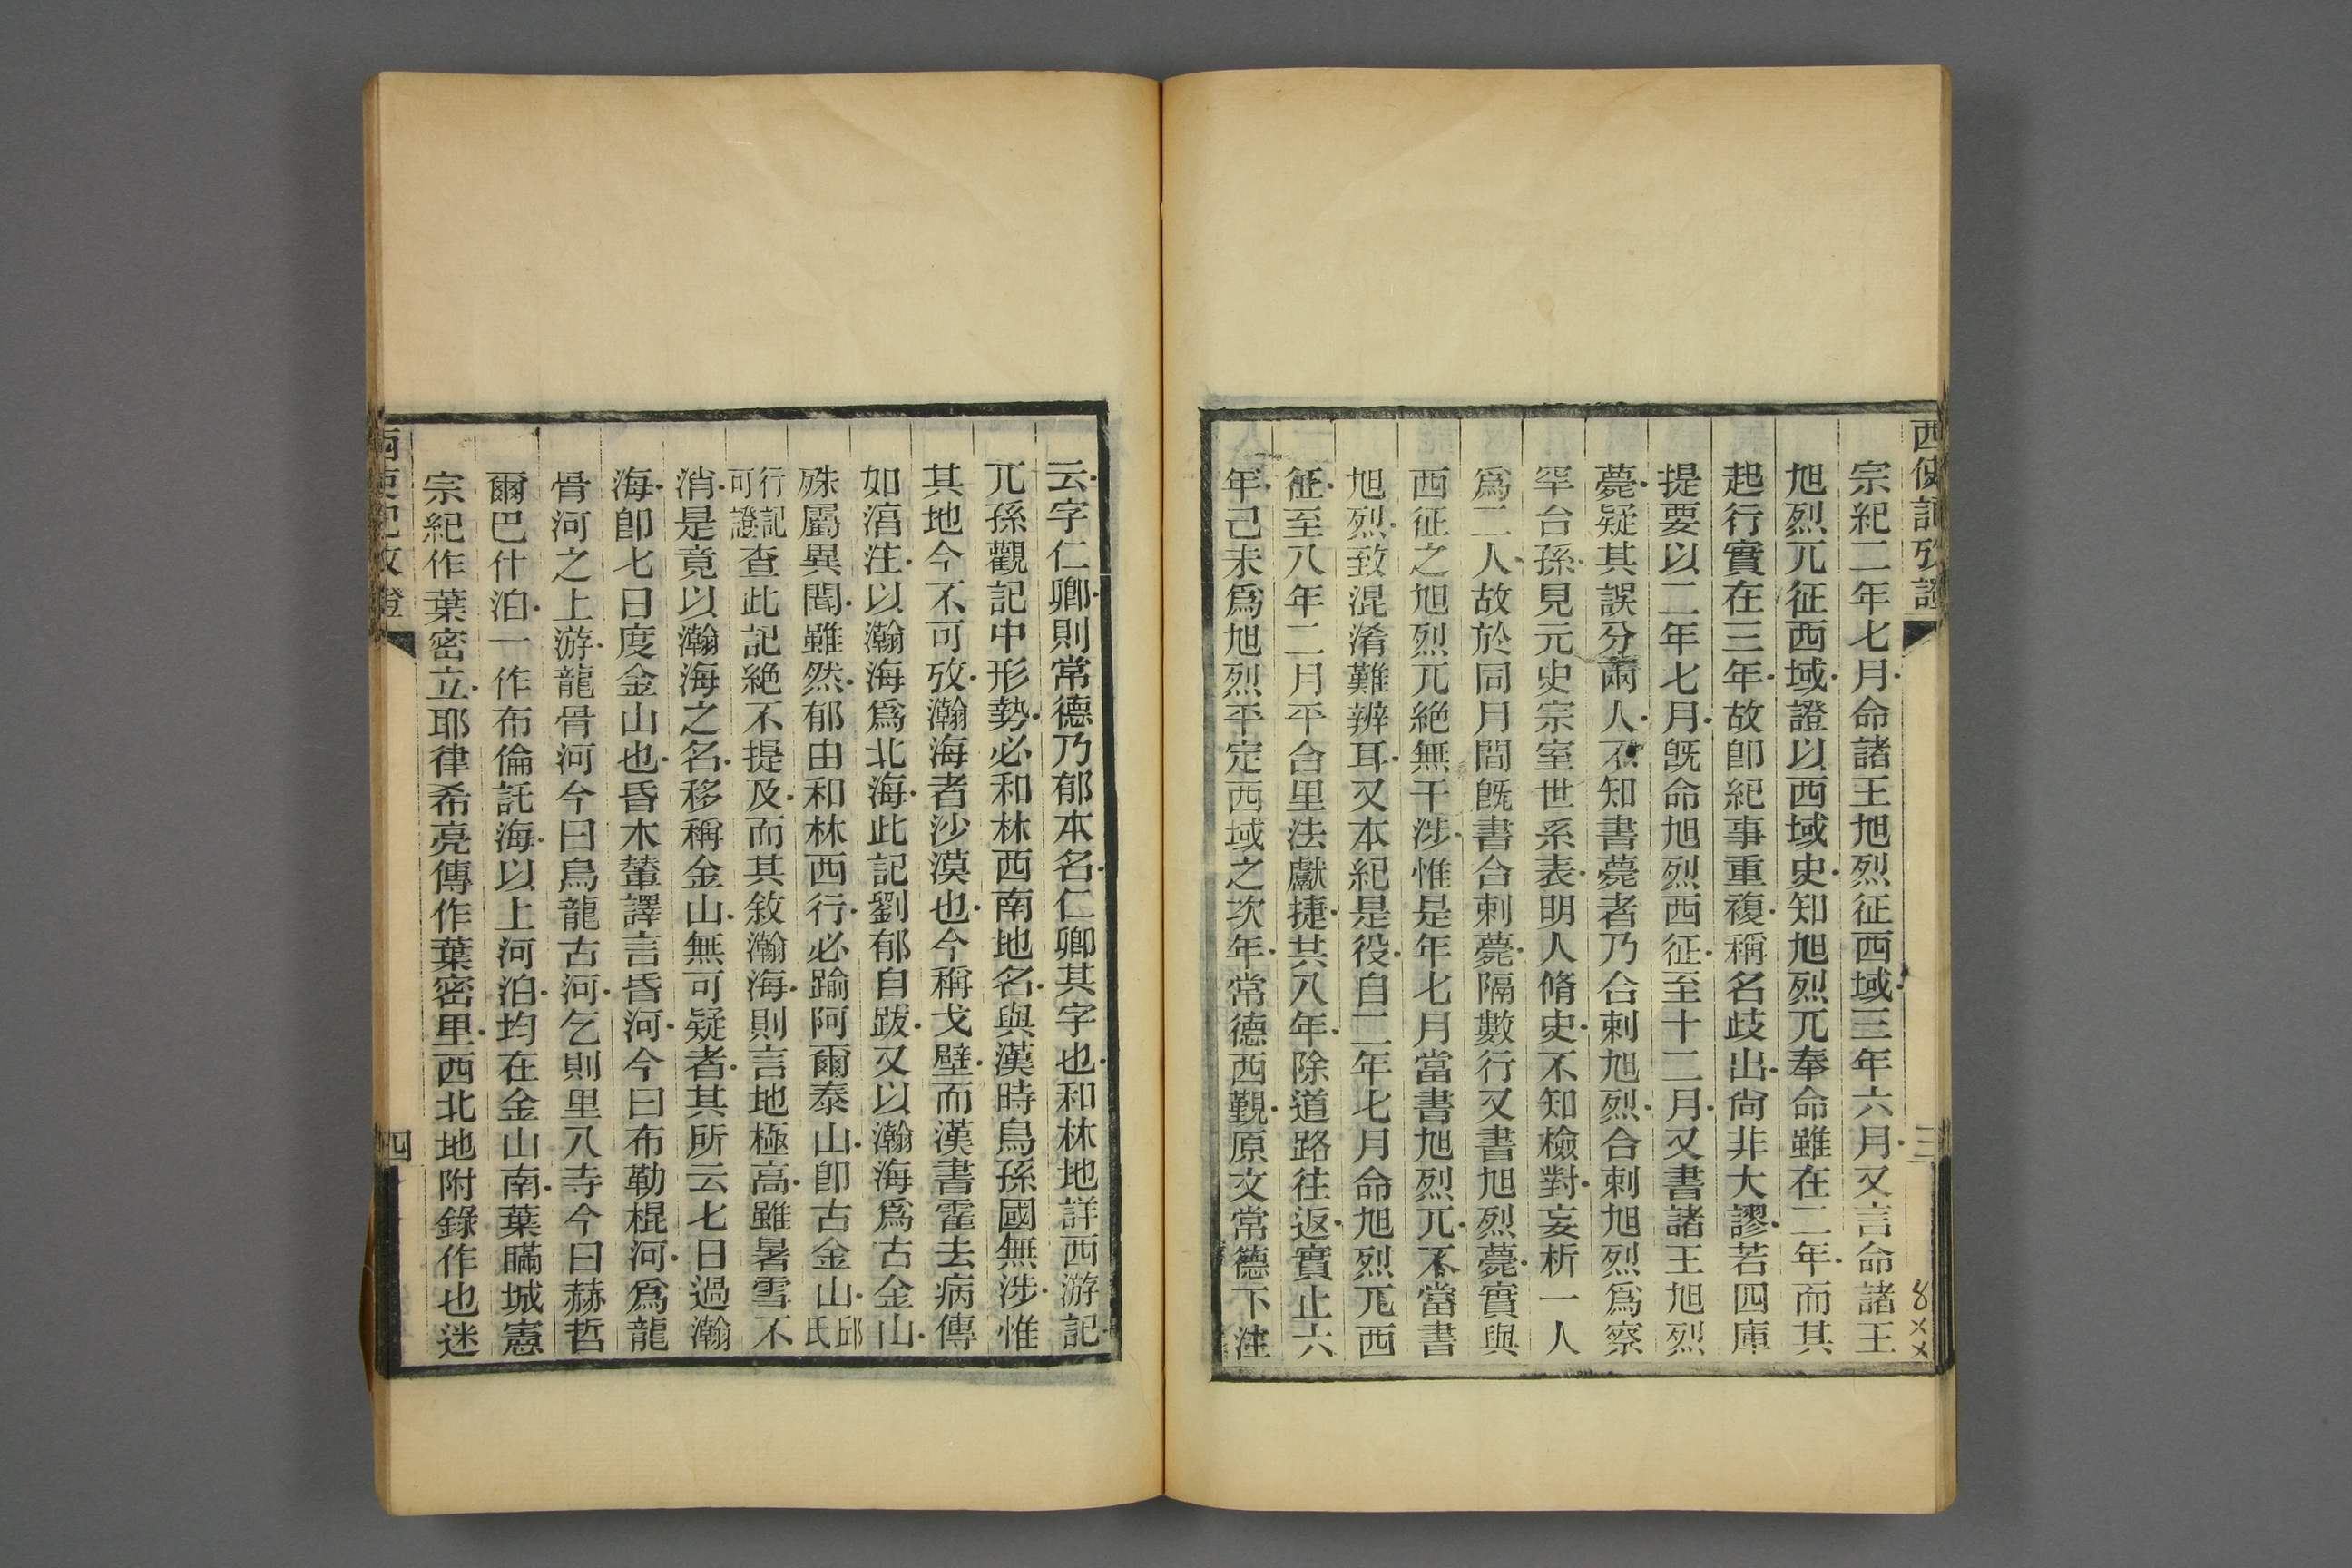 西使記攷證
三
宗紀二年七月命諸王旭烈征西域三年六月又言命諸王
旭烈兀征西域證以西域史知旭烈兀奉命雖在二年而其
起行實在三年故卽紀事重複稱名歧出尙非大謬若四庫
提要以二年七月旣命旭烈西征至十二月又書諸王旭烈
薨疑其誤分兩人不知書薨者乃合剌旭烈合剌旭烈爲察
罕台孫見元史宗室世系表明人脩史不知檢對妄析一人
爲二人故於同月間旣書合剌薨隔數行又書旭烈薨實與
西征之旭烈兀絕無干涉惟是年七月當書旭烈兀不當書
旭烈致混淆難辨耳又本紀是役自二年七月命旭烈兀西
征至八年二月平合里法獻捷其八年除道路往返實止六
年己未爲旭烈平定西域之次年常德西覲原文常德下注
云字仁卿則常德乃郁本名仁卿其字也和林地詳西游記
兀孫觀記中形勢必和林西南地名與漢時烏孫國無涉惟
其地今不可攷瀚海者沙漠也今稱戈壁而漢書霍去病傳
如淳注以瀚海爲北海此記劉郁自跋又以瀚海爲古金山
殊屬異聞雖然郁由和林西行必踰阿爾泰山卽古金山邱氏
行記可證查此記絕不提及而其敘瀚海則言地極高雖暑雪不
消是竟以瀚海之名移稱金山無可疑者其所云七日過瀚
海卽七日度金山也昏木輦譯言昏河今曰布勒棍河爲龍
骨河之上游龍骨河今曰烏龍古河乞則里八寺今曰赫哲
爾巴什泊一作布倫託海以上河泊均在金山南葉瞞城憲
宗紀作葉密立耶律希亮傳作葉密里西北地附錄作也迷
西使記攷證
四